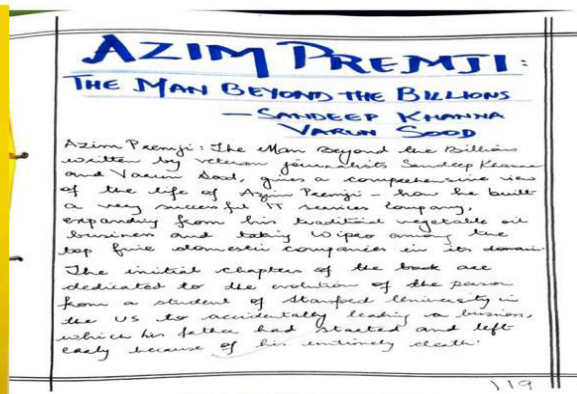 AZIM PREMJI:
THE MAN BEYOND THE BILLIONS
- SANDEEP KHANNA
VARUN SOOD
Azim Premji: The Man Beyond the Billions
written by veteran journalists Sandeep Khanna
and Varun Sood, gives a comprehensive view
of the life of Azim Premji - how he built
a very successful IT services company,
expanding from his traditional vegetable oil
business and taking Wipro among the
top five domestic companies in its domain.
The initial chapters of the book are
dedicated to the evolution of the person
from a student of Stanford University in
the US to accidentally leading a business,
which his father had started and left
early because of his untimely death.
119